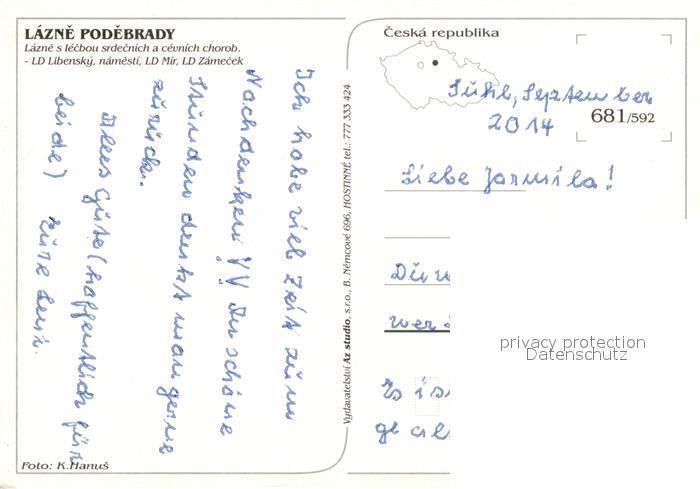 LÁZNĚ PODĚBRADY
Lázně s léčbou srdečních a cévních chorob.
- LD Libenský, náměstí, LD Mír, LD Zámeček
Česká republika
681/592
Suhl, September
2014
Liebe Jarmila!
Es is
Ich habe viel Zeit zum
Nachdenken! An schöne
Stunden denkt man gerne
zurück.
Alles Gute (hoffentlich für
beide)
Vydavatelství Az studio, s.r.o., B. Němcové 696, HOSTINNÉ tel.: 777 333 424
Foto: K.Hanuš
privacy protection
Datenschutz